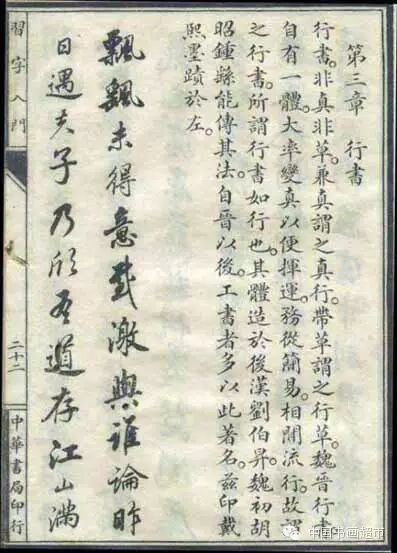 第三章　行書
行書。非真非草。兼真謂之真行。帶草謂之行草。魏晉行書
自有一體。大率變真以便揮運。務從簡易。相間流行。故謂
之行書。所謂行書如行也。其體造於後漢劉伯昇。魏初胡
昭鍾繇能傳其法。自晉以後。工書者多以此著名。茲印戴
熙墨蹟於左。
飄飄未得意感激與誰論昨
日遇夫子乃欣吾道存江山滿
習字入門
二十二
中華書局印行
中国书画超市